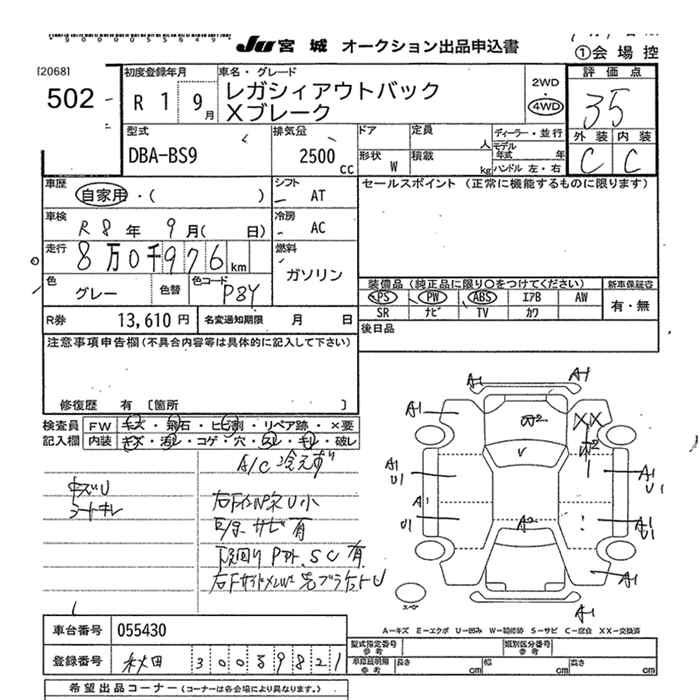 JU 宮城 オークション出品申込書
①会場控
[2068]
502
初度登録年月
R 1 9月
車名・グレード
レガシィアウトバック
Xブレーク
2WD
4WD
評価点
35
外装 内装
C C
型式
DBA-BS9
排気分
2500 cc
ドア
定員 人
形状 W
積載 kg
ディーラー・並行
モデル年式 年
ハンドル 左・右
車歴
自家用・( )
シフト
AT
セールスポイント (正常に機能するものに限ります)
車検
R 8年 9月( 日)
冷房
AC
走行
8万0千976km
燃料
ガソリン
色
グレー
色替
色コード
P8Y
装備品 (純正品に限り〇をつけてください)
新車保証書
PS PW ABS エアB AW
SR ナビ TV カワ
有・無
R券 13,610円
名変通知期限 月 日
後日品
注意事項申告欄(不具合内容等は具体的に記入して下さい)
修復歴 有 [箇所 ]
検査員記入欄
FW キズ・飛石・ヒビ割・リペア跡・×要
内装 キズ・汚レ・コゲ・穴・スレ・キレ・破レ
A/C 冷えず
キズU
シートキレ
右Fドア内張U小
下廻サビ有
A1 A1
A1 XX
W2 W2
A1 U1
A1 U1
A1
U1 A2 A1 U1
A1
A1
A―キズ E―エクボ U―凹み W―補修跡 S―サビ C―腐食 XX―交換済
車台番号 055430
登録番号 秋田 300 す 9821
型式指定番号 参考
類別区分番号 参考
車検証明細 参考
長さ cm 幅 cm 高さ cm
希望出品コーナー (コーナーは各会場により異なります。)